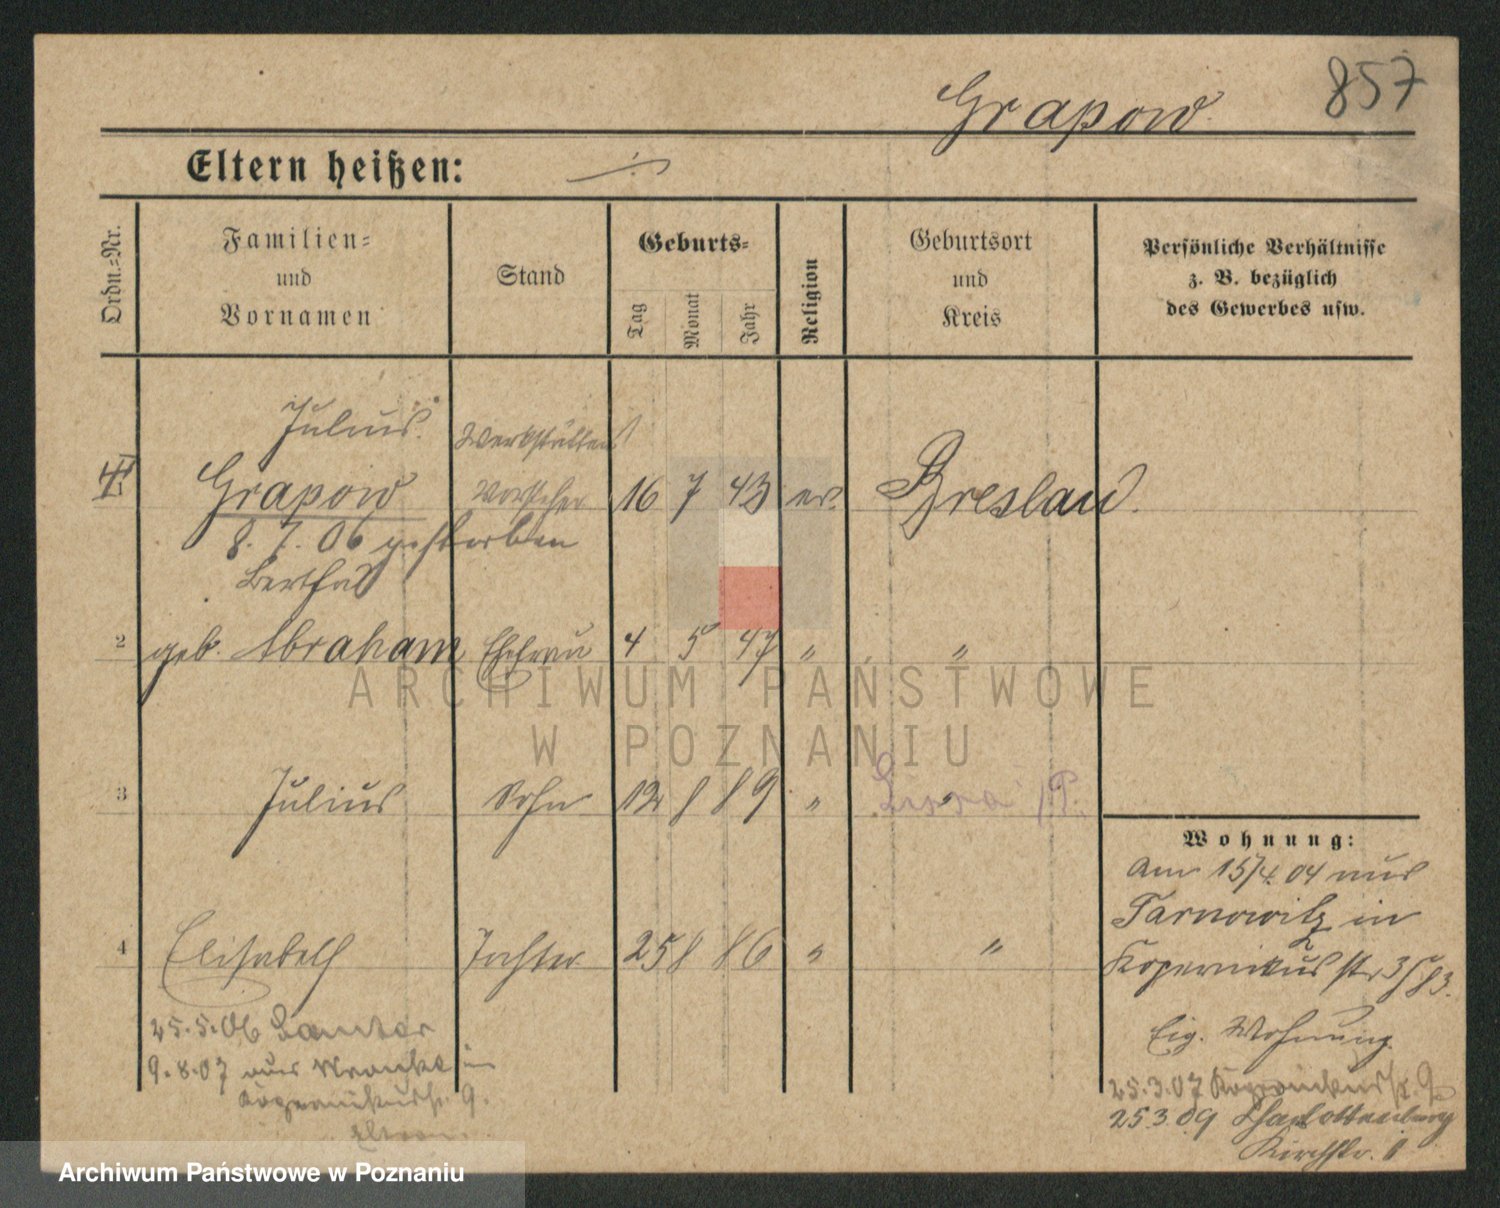 857
Grapow
Eltern heißen: ·/·
Ordn.=Nr.
Familien=
und
Vornamen
Stand
Geburts=
Tag
Monat
Jahr
Religion
Geburtsort
und
Kreis
Persönliche Verhältnisse
z. B. bezüglich
des Gewerbes usw.
Julius. Werkstätten
Grapow Vorsteher 16 7 43 ev. Breslau.
8. 7. 06 gestorben
Bertha
2 geb. Abraham Ehefrau 4 5 47 " "
3 Julius Sohn 12 8 89 " Lissa i/P.
4 Elisabeth Tochter 25 8 86 " "
25.5.06 Samter
9.8.07 aus Wronke in
Kopernikusstr. 9.
Eltern.
Wohnung:
Am 15/4. 04 aus
Tarnowitz in
Kopernikus str 3
Eig. Wohnung.
25.3.07 Kopernikusstr. 9
25 3 09 Charlottenburg
Kirchstr. 1
ARCHIWUM PAŃSTWOWE
W POZNANIU
Archiwum Państwowe w Poznaniu